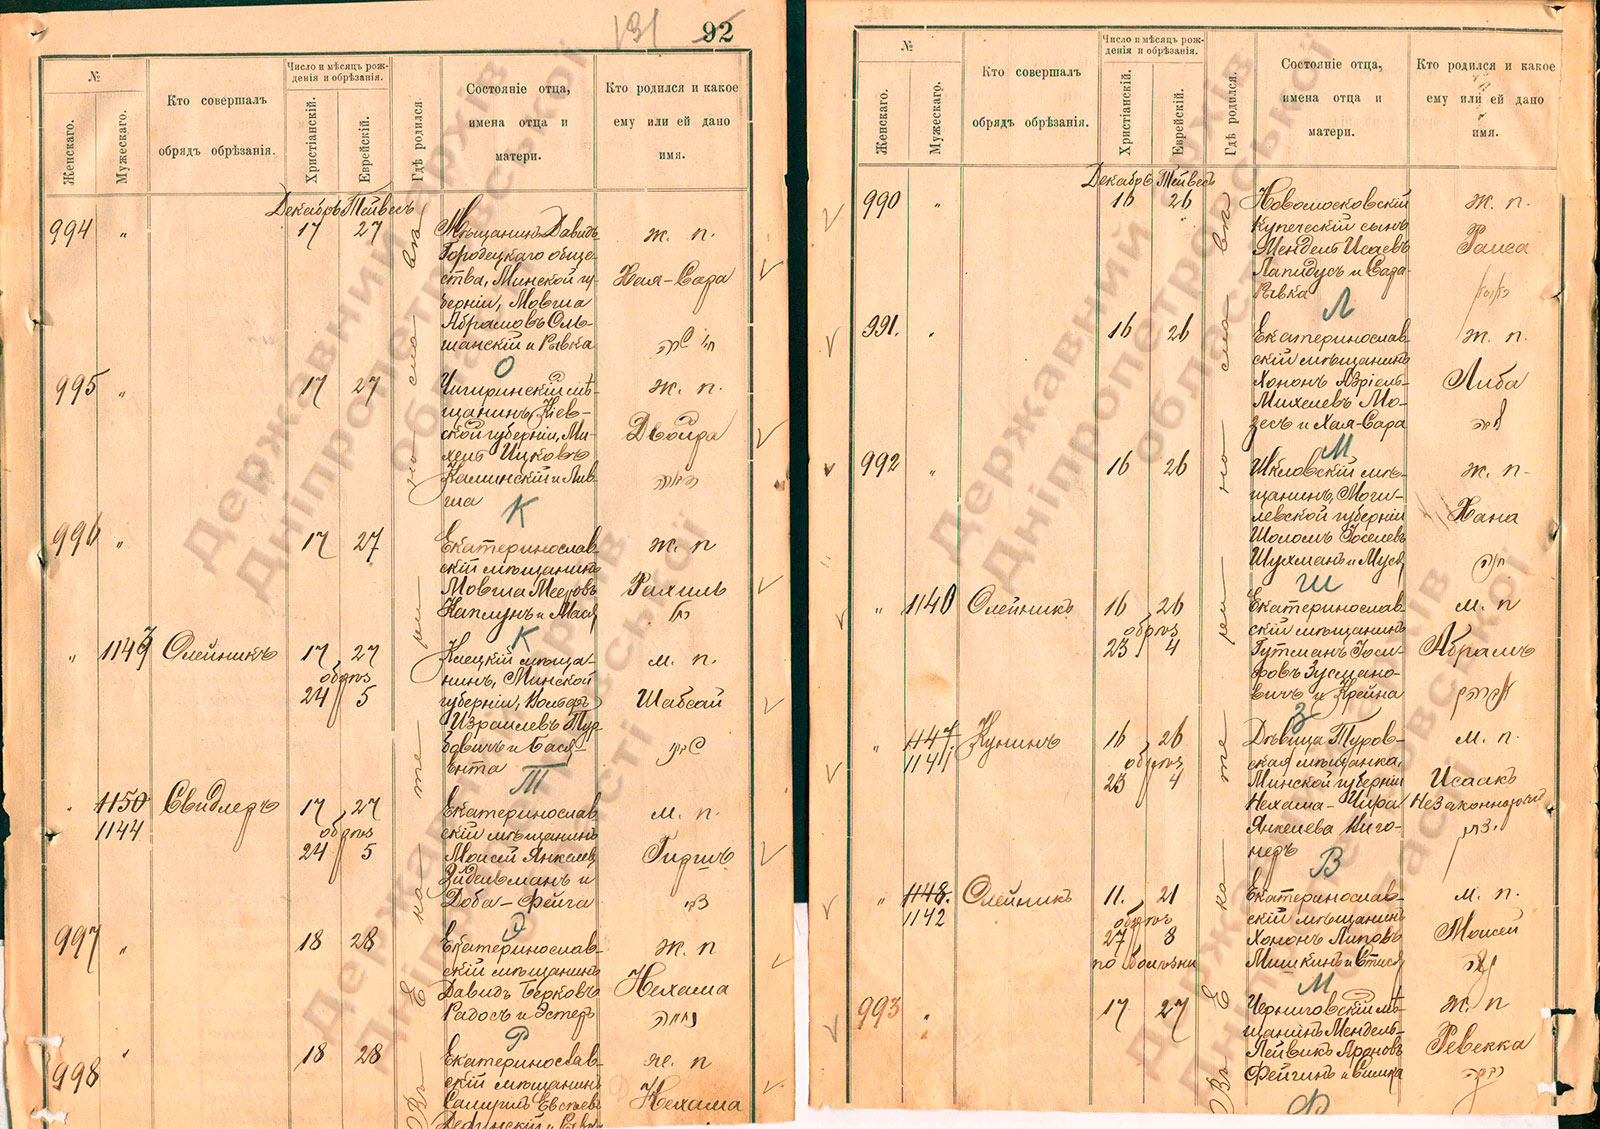 131 92
№
Женскаго.
Мужескаго.
Кто совершалъ
обрядъ обрѣзанія.
Число и мѣсяцъ рож-
денія и обрѣзанія.
Христіанскій.
Еврейскій.
Гдѣ родился.
Состояніе отца,
имена отца и
матери.
Кто родился и какое
ему или ей дано
имя.
Декабрь Тейвесъ
994 " 17 27
Мѣщанинъ Давидъ
Городецкаго обще-
ства, Минской гу-
берніи, Мовша
Абрамовъ Оль-
шанскій и Рывка
ж. п.
Хая-Сара
О
995 " 17 27
Чигиринскій мѣ-
щанинъ, Кіев-
ской губерніи, Ми-
хель Ицковъ
Каминскій и Лив-
ша
ж. п.
Двойра
К
996 " 17 27
Екатеринослав-
скій мѣщанинъ
Мовша Мееровъ
Каплунъ и Мася
ж. п
Рахиль
К
" 1143 Олейникъ 17 27
обрѣз
24 5
Клецкій мѣща-
нинъ, Минской
губерніи, Вольфъ
Израилевъ Тур-
бовичъ и Бася-
Ента
м. п.
Шабсай
Т
" 1150 Свидлеръ 17 27
1144 обрѣз
24 5
Екатеринослав-
скій мѣщанинъ
Моисей Янкелев
Зйдельманъ и
Доба-Фейга
м. п.
Гиршъ
З
997 " 18 28
Екатеринослав-
скій мѣщанинъ
Давидъ Берковъ
Радосъ и Эстеръ
ж. п
Нехама
Р
998 " 18 28
Екатеринослав-
скій мѣщанинъ
Самуилъ Евсѣевъ
ж. п
Нехама
Въ Екатеринославѣ
№
Женскаго.
Мужескаго.
Кто совершалъ
обрядъ обрѣзанія.
Число и мѣсяцъ рож-
денія и обрѣзанія.
Христіанскій.
Еврейскій.
Гдѣ родился.
Состояніе отца,
имена отца и
матери.
Кто родился и какое
ему или ей дано
имя.
Декабрь Тейвесъ
990 " 16 26
Новомосковскій
Купеческій сынъ
Мендель Исаевъ
Лапидусъ и Сара
Рывка
ж. п.
Раиса
Л
991. " 16 26
Екатеринослав-
скій мѣщанинъ
Хононъ Азріель-
Михелевъ Мо-
зесъ и Хая-Сара
ж. п.
Либа
М
992 " 16 26
Шкловскій мѣ-
щанинъ, Моги-
левской губерніи
Шоломъ Іоселевъ
Шухманъ и Муся
ж. п.
Хана
Ш
" 1140 Олейникъ 16 26
обрѣз
23 4
Екатеринослав-
скій мѣщанинъ
Гутманъ Іоси-
фовъ Зусмано-
вичъ и Крейна
м. п
Абрамъ
З
" 1147. Кунинъ 16 26
1141 обрѣз
23 4
Дѣвица Туров-
ская мѣщанка,
Минской губерніи
Нехама-Цира
Янкелева Виго-
неръ
м. п.
Исаакъ
Незаконнорожд
В
" 1148. Олейникъ 11. 21
1142 обрѣз
27 8
по болѣзни
Екатеринослав-
скій мѣщанинъ
Хононъ Липовъ
Мишкинъ и Стися
м. п.
Моисей
М
993 " 17 27
Черниговскій мѣ-
щанинъ Мендель-
Лейвикъ Ароновъ
Фейгинъ и Симка
ж. п
Ревекка
Ф
Въ Екатеринославѣ
Державний архів
Дніпропетровської
області